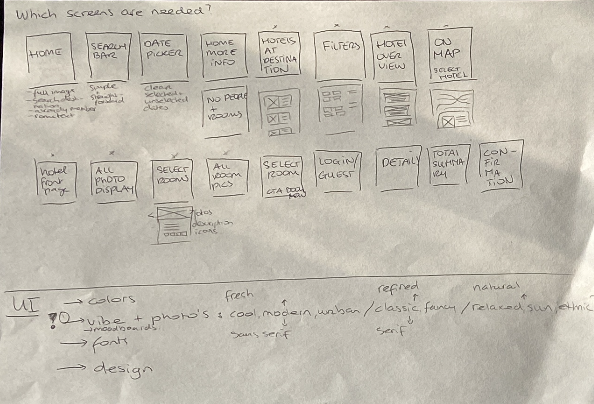 Which screens are needed?
HOME
SEARCH
BAR
DATE
PICKER
HOME
MORE
INFO
HOTELS
AT
DESTINA
TION
FILTERS
HOTEL
OVER
VIEW
ON
MAP
SELECT
HOTEL
- full image
- already member
simple
clean
selected +
unselected
dates
NO PEOPLE
+
ROOMS
hotel
front
page
ALL
PHOTO
DISPLAY
SELECT
ROOMS
ALL
ROOM
PICS
SELECT
ROOM
CTA BOOK
NOW
LOGIN/
GUEST
DETAIL
TOTAL
SUMMA
RY
CON-
FIR
MATION
photos
description
icons
UI
→ colors
fresh
refined
natural
→ vibe + photo's : cool, modern, urban / classic, fancy / relaxed, sun, ethnic
→ moodboards
sans serif
serif
→ fonts
→ design